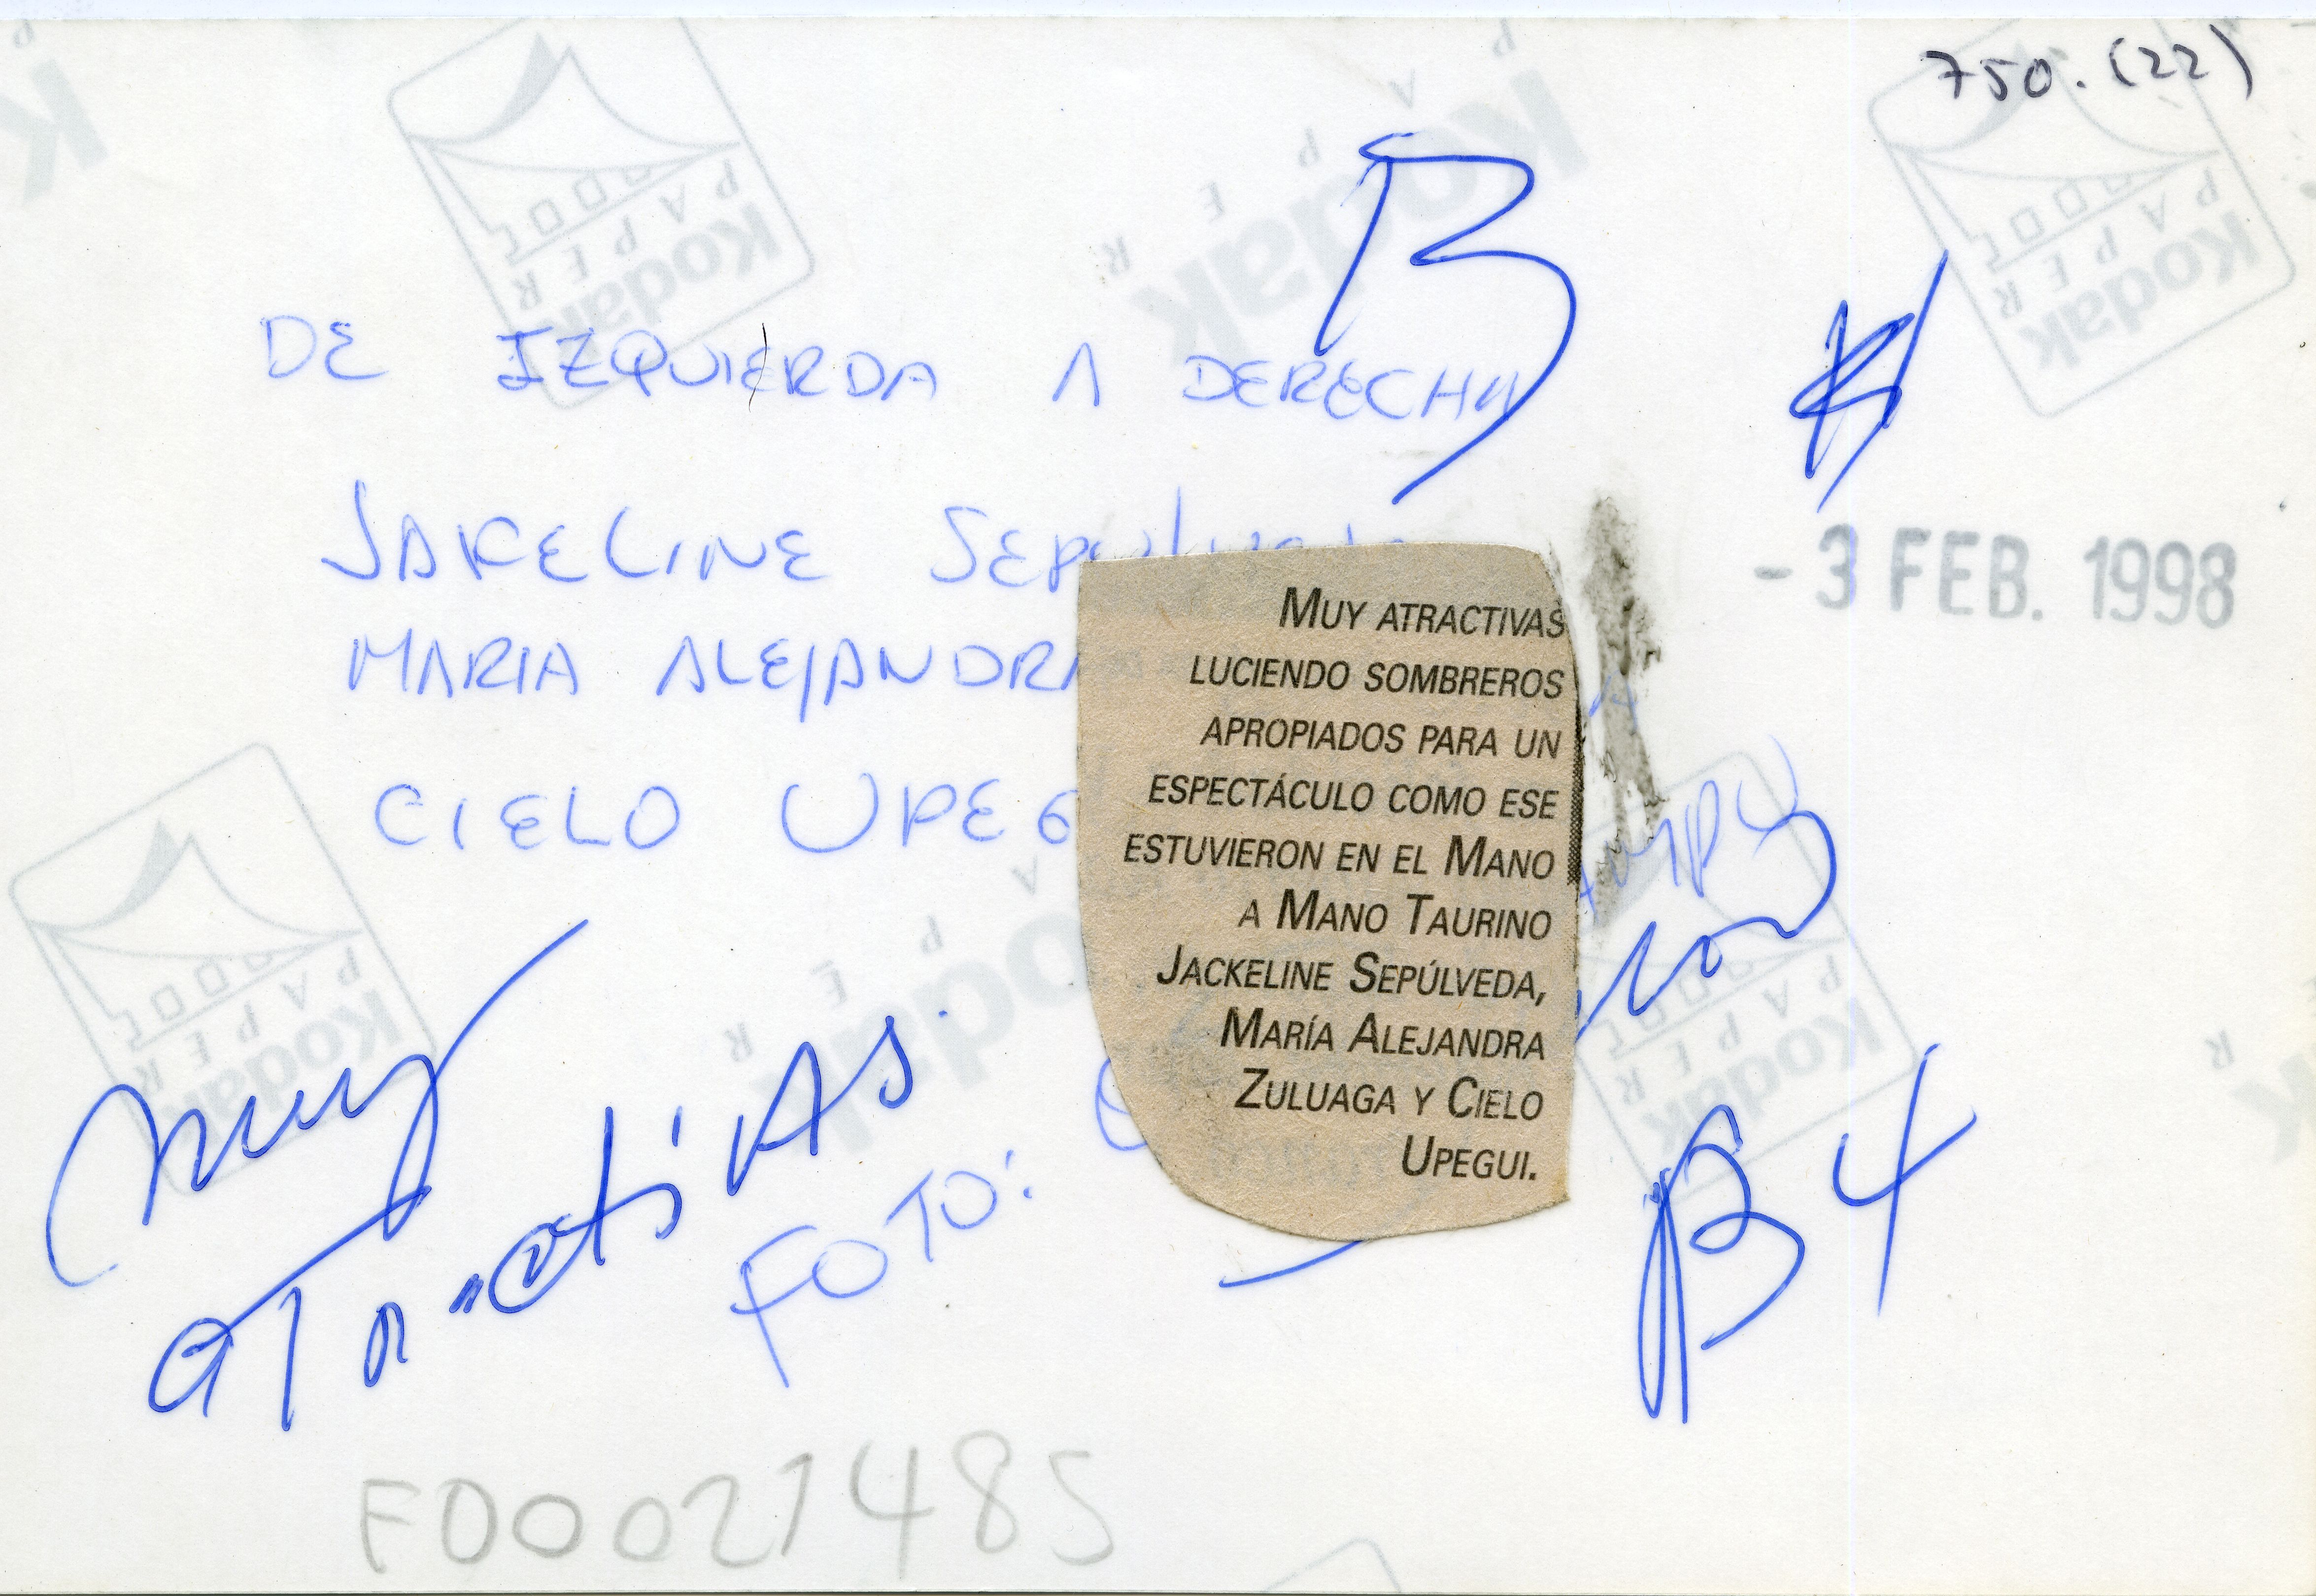 750. (22)
B
DE IZQUIERDA A DERECHA
JAKELINE
- 3 FEB. 1998
MARIA ALEJANDRA
CIELO UPEG
MUY ATRACTIVAS
LUCIENDO SOMBREROS
APROPIADOS PARA UN
ESPECTÁCULO COMO ESE
ESTUVIERON EN EL MANO
A MANO TAURINO
JACKELINE SEPÚLVEDA,
MARÍA ALEJANDRA
ZULUAGA Y CIELO
UPEGUI.
Muy
atractivas.
FOTO:
B 4
F00021485
Kodak
PAPER